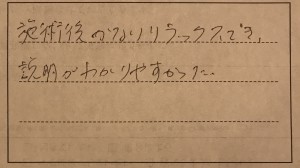 施術後かなりリラックスでき、
説明がわかりやすかった。